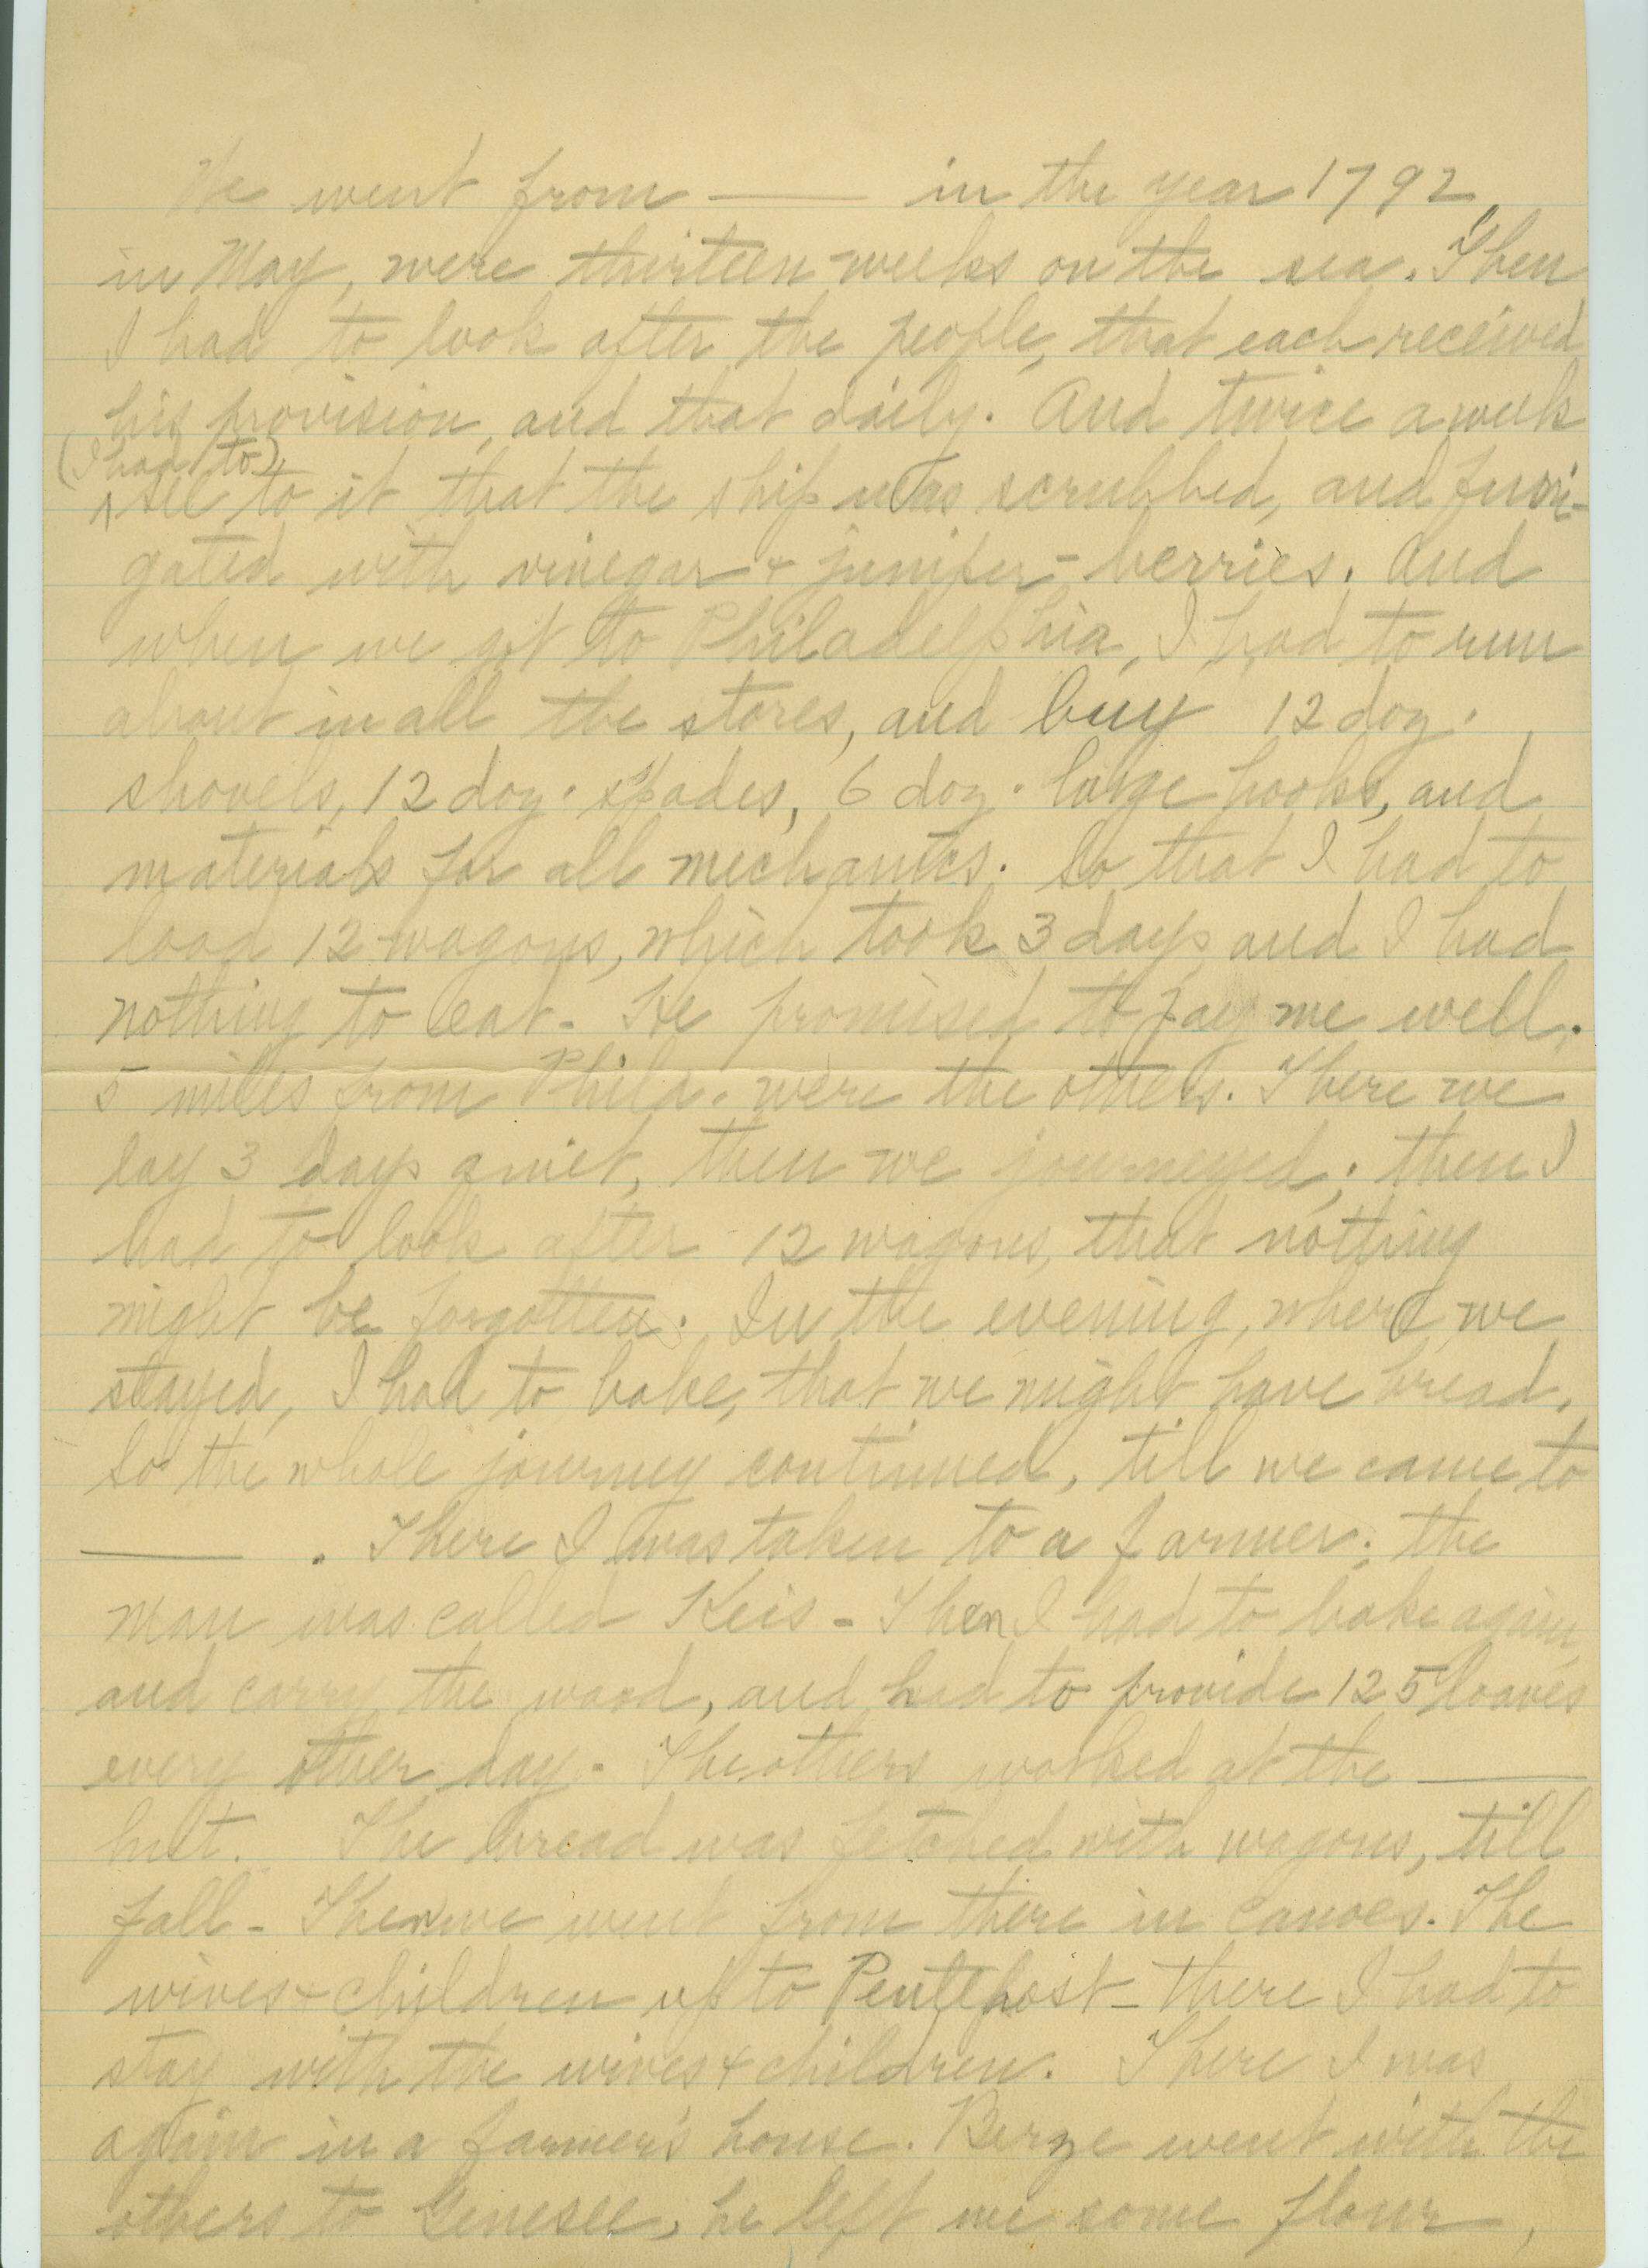 We went from —— in the year 1792
in May, were thirteen weeks on the sea. Then
I had to look after the people, that each received
his provision, and that daily. And twice a week
(I had to)
^ see to it that the ship was scrubbed, and fumi-
gated with vinegar + juniper-berries. And
when we got to Philadelphia, I had to run
about in all the stores, and buy 12 doz.
shovels, 12 doz. spades, 6 doz. large hooks, and
materials for all mechanics. So that I had to
load 12 wagons, which took 3 days and I had
nothing to eat. He promised to pay me well.
5 miles from Phila. were the others. There we
lay 3 days quiet, then we journeyed; then I
had to look after 12 wagons, that nothing
might be forgotten. In the evening, where we
stayed, I had to bake, that we might have bread.
So the whole journey continued, till we came to
—— . There I was taken to a farmer; the
man was called Keis - Then I had to bake again,
and carry the wood, and had to provide 125 loaves
every other day. The others worked at the ——
hut. The bread was fetched with wagons, till
fall - Then we went from there in canoes. The
wives + children up to Pentepost - there I had to
stay with the wives + children. There I was
again in a farmer's house. Berze went with the
others to Genesee, he left me some flour,